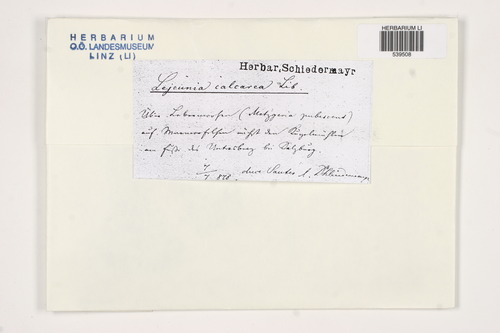 HERBARIUM
O.Ö. LANDESMUSEUM
LINZ (LI)
HERBARIUM LI
539508
Herbar, Schiedermayr
Lejeunia calcarea Lib.
Über Lebermoosen (Metzgeria pubescens)
auf Marmorfelsen nächst den
am Fuße des Untersberg bei Salzburg.
7/7